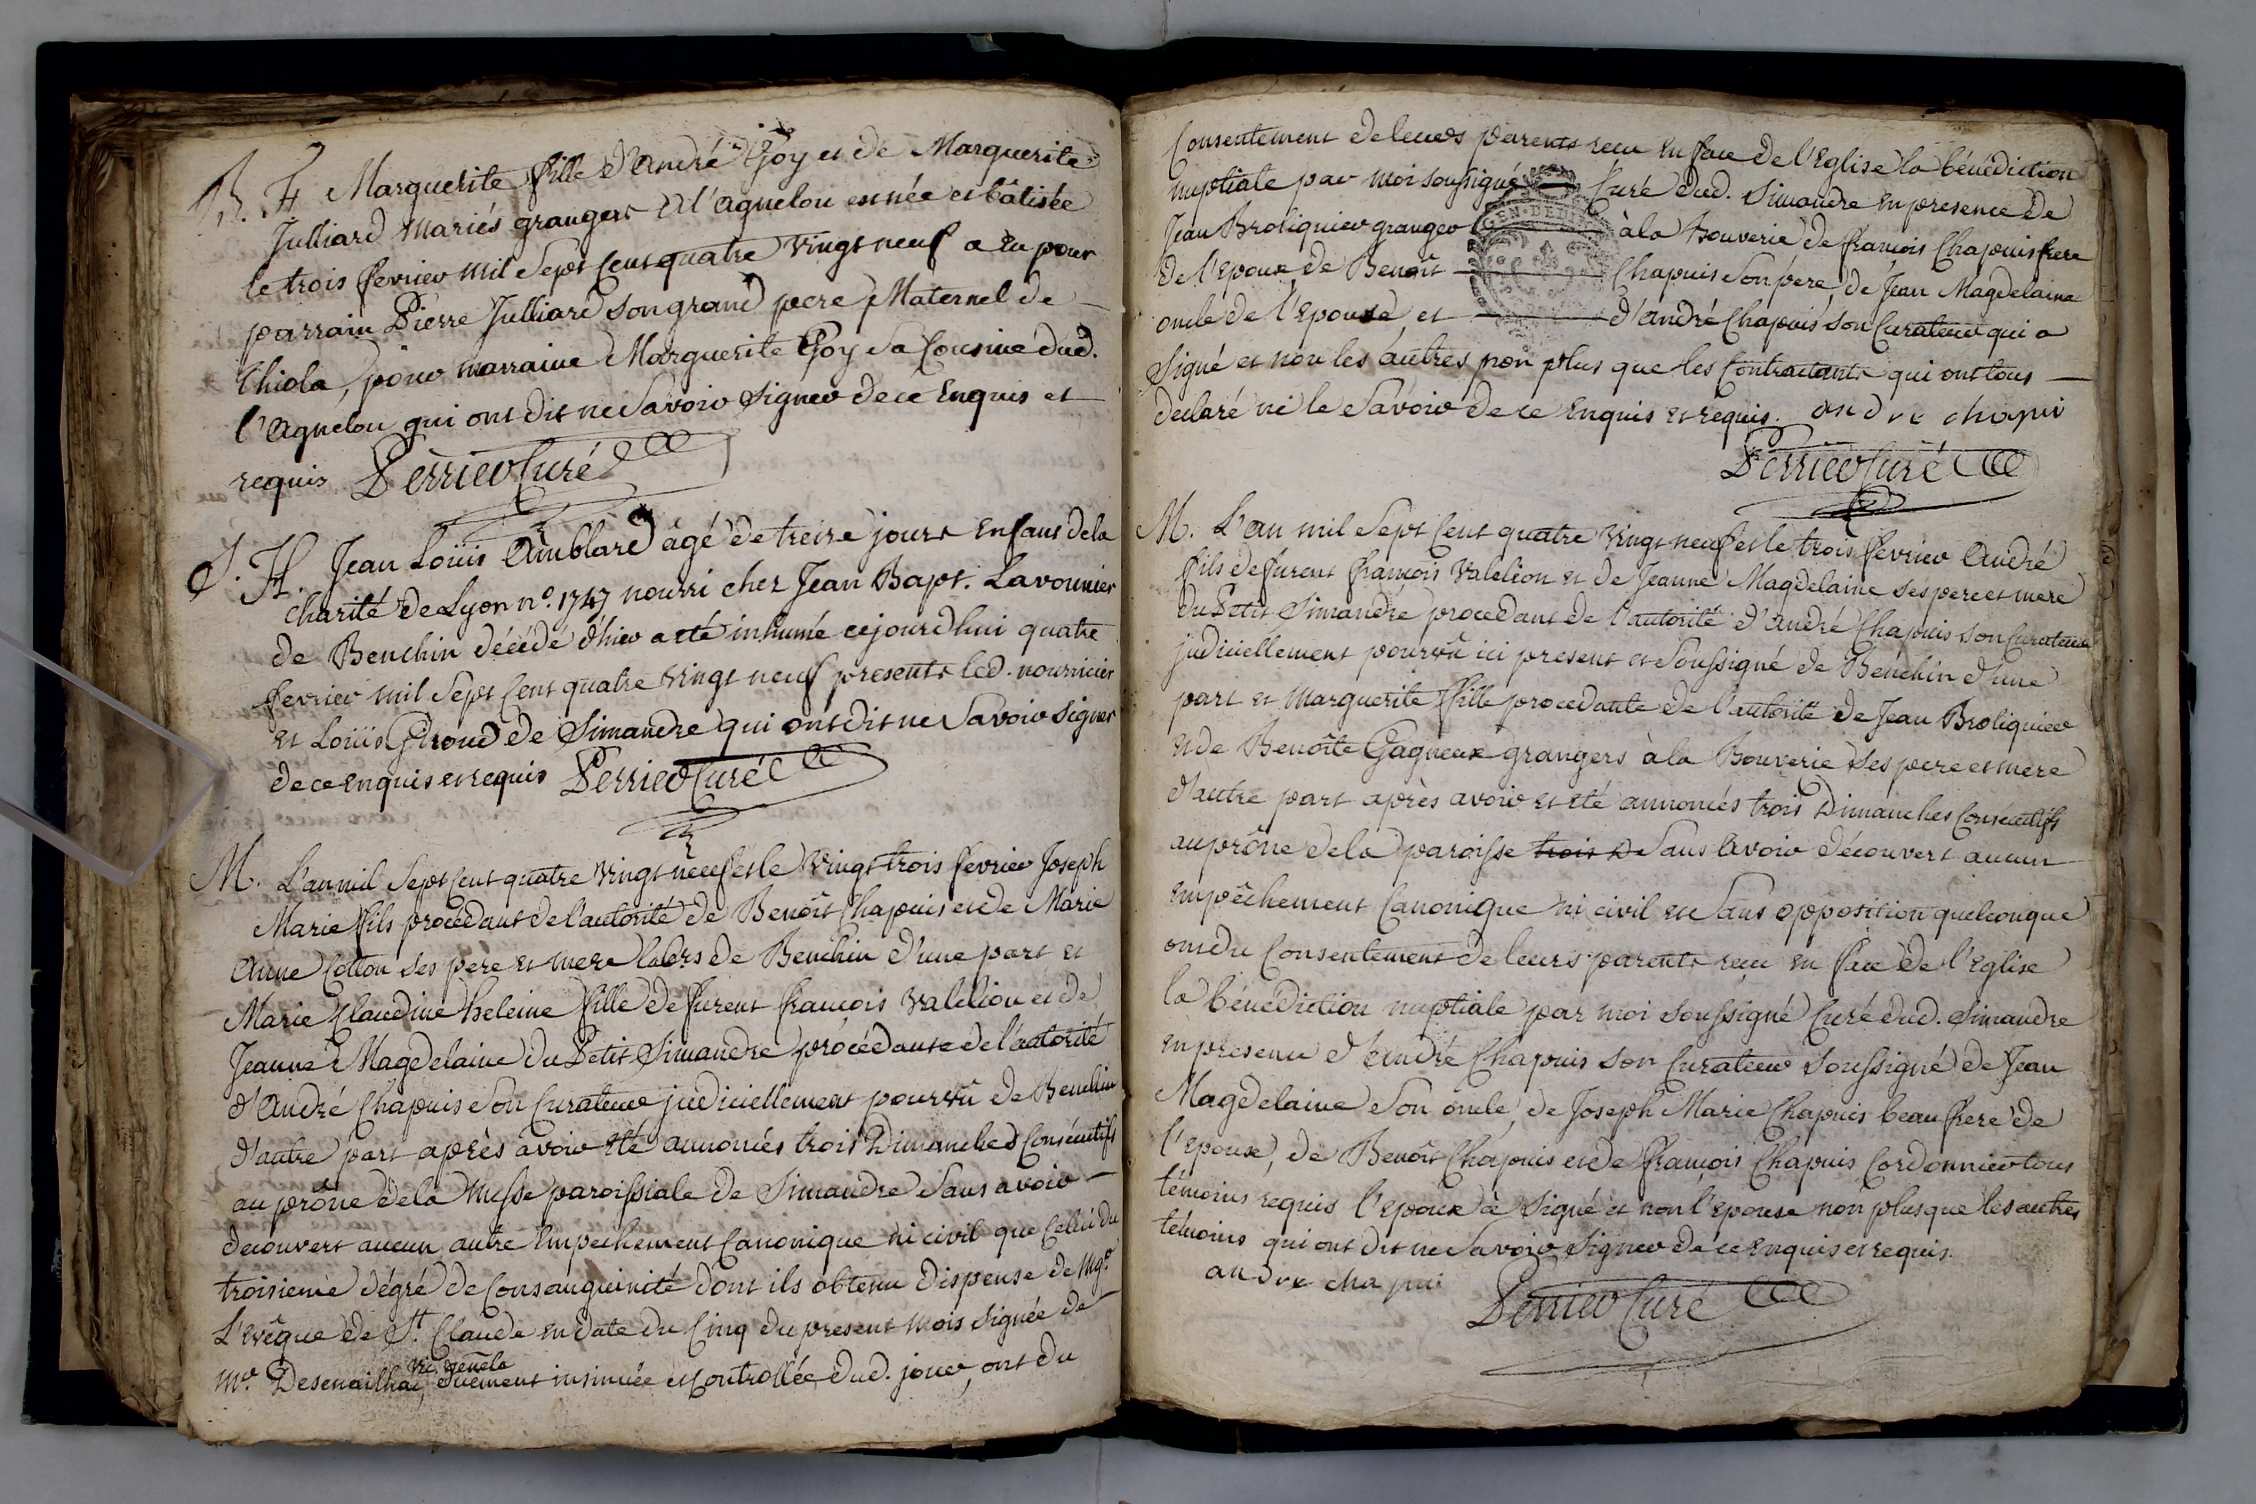 B. F. Marguerite fille d'andré Goy et de Marguerite
Julliard Mariés grangers A l'agnelou est née et bâtisée
le trois fevrier mil Sept Cent quatre vingt neuf a eu pour
parrain Pierre Julliard son grand pere Maternel de
Chiola, pour marraine Marguerite Goy sa Cousine dud.
l'agnelou qui ont dit ne Savoir signer de ce Enquis et
requis Perrier Curé
S. H. Jean Loüis Amblard âgé de treize jours Enfant de la
Charité de Lyon n°. 1747 nourri chez Jean Bapt. Lavounier
de Benchin décédé d'hier a été inhumé cejourdhui quatre
fevrier mil Sept Cent quatre vingt neuf presents led. nourricier
et Loüis Giroud de Simandre qui ont dit ne Savoir signer
de ce enquis et requis Perrier Curé
M. L'an mil Sept Cent quatre vingt neuf et le vingt trois fevrier Joseph
Marie fils procedant de l'autorité de Benoît Chapuis et de Marie
anne Cotton ses pere et mere labrs de Benchin d'une part et
Marie Claudine heleine fille de furent françois valelion et de
Jeanne Magdelaine du Petit Simandre procédante de l'autorité
d'André Chapuis son Curateur judiciellement pourvû de Benchin
d'autre part après avoir été annoncés trois Dimanches Consécutifs
au prône de la Messe paroissiale de Simandre Sans avoir
decouvert aucun autre Empechement Canonique ni civil que Celui du
troisieme dégré de Consanguinité dont ils obtenu dispense de Mgr.
L'evêque de St. Claude en date du Cinq du present mois signée de
vic. general
Mr. Desenailhac, duëment insinuée et Controllée dud. jour, ont du
Consentement de leurs parents recu en face de l'Eglise la bénédiction
nuptiale par moi soussigné Curé dud. Simandre en presence de
Jean Broliquier granger à la Bouverie de françois Chapuis frere
de l'epoux de Benoît Chapuis son pére, de Jean Magdelaine
oncle de l'Epouse, et d'andré Chapuis son Curateur qui a
signé et non les autres non plus que les Contractants qui ont tous
declaré ne le Savoir de ce Enquis et requis. andre chapui
GEN. DE DI
Perrier Curé
M. L'an mil Sept Cent quatre vingt neuf et le trois fevrier André
fils de furent françois Valelion et de Jeanne Magdelaine ses pere et mere
du Petit Simandre procedant de l'autorité d'andré Chapuis son Curateur
judiciellement pourvû ici present et Soussigné de Benchin d'une
part et Marguerite fille procedante de l'autorité de Jean Broliquier
et de Benoîte Gagneux grangers à la Bouverie ses pere et mere
d'autre part après avoir et été annoncés trois Dimanches Consécutifs
au prône de la paroisse trois D Sans avoir découvert aucun
empêchement Canonique ni civil et Sans opposition quelconque
ont du Consentement de leurs parents recu en face de l'Eglise
la bénédiction nuptiale par moi soussigné Curé dud. Simandre
en presence d'andré Chapuis son Curateur soussigné de Jean
Magdelaine Son oncle, de Joseph Marie Chapuis beau frere de
l'epoux, de Benoît Chapuis et de françois Chapuis Cordonnier tous
témoins requis l'epoux a signé et non l'epouse non plus que les autres
témoins qui ont dit ne Savoir signer de ce enquis et requis.
andre chapui
Perrier Curé